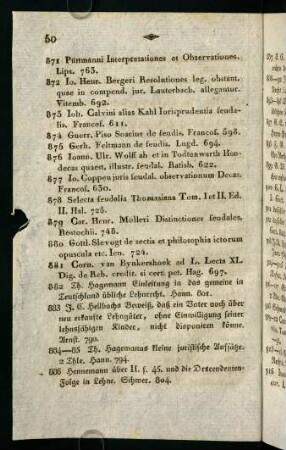 50
871 Püttmanni Interpretationes et Observationes.
Lips. 763.
872 Io. Henr. Bergeri Resolutiones leg. obstant.
quae in compend. jur. Lauterbach. allegantur.
Vitemb. 692.
873 Ioh. Calvini alias Kahl Iorisprudentia feuda-
lis. Francof. 611.
874 Guerr. Piso Soacius de feudis, Francof. 598.
875 Gerh. Feltmann de feudis. Lugd. 694.
876 Ioann. Ulr. Wolff ab et in Todtenwarth Hon-
decas quaest. illustr. feudal. Ratisb. 622.
877 Io. Coppen juris feudal. observationum Decas.
Francof. 630.
878 Selecta feudalia Thomasiana Tom. I et II, Ed.
II. Hal. 728.
879 Car. Henr. Molleri Distinctiones feudales.
Rostochii. 748.
880 Gottl. Slevogt de sectis et philosophia ictorum
opuscula etc. Ien. 724.
881 Corn. van Bynkershoek ad L. Lecta XL.
Dig. de Reb. credit. si cert. pet. Hag. 697.
882 Th. Hagemann Einleitung in das gemeine in
Teuschland übliche Lehnrecht. Hann. 801.
883 J. C. Hellbachs Beweiß, daß ein Vater auch über
neu erkaufte Lehngüter, ohne Einwilligung seiner
lehnsfähigen Kinder, nicht disponiren könne.
Arnst. 790.
884—85 Th. Hagemanns kleine juristische Aufsätze.
2 Thle. Hann. 794.
886 Hennemann über II. f. 45. und die Descendenten-
Folge in Lehne. Schwer. 804.